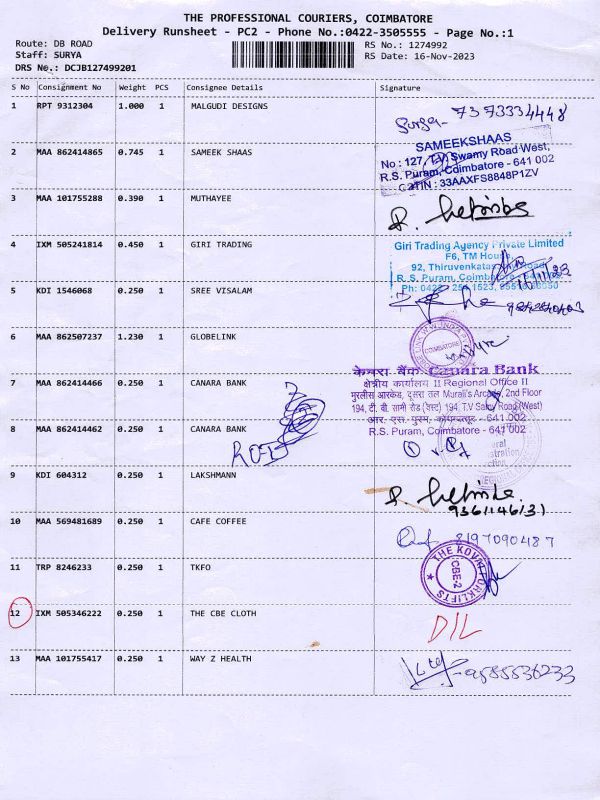 THE PROFESSIONAL COURIERS, COIMBATORE
Delivery Runsheet - PC2 - Phone No.:0422-3505555 - Page No.:1
Route: DB ROAD
RS No.: 1274992
Staff: SURYA
RS Date: 16-Nov-2023
DRS No.: DCJB127499201
S No Consignment No Weight PCS Consignee Details Signature
1 RPT 9312304 1.000 1 MALGUDI DESIGNS
7373334448
2 MAA 862414865 0.745 1 SAMEEK SHAAS
SAMEEKSHAAS
No : 127, T.V. Swamy Road West,
R.S. Puram, Coimbatore - 641 002
GSTIN : 33AAXFS8848P1ZV
3 MAA 101755288 0.390 1 MUTHAYEE
4 IXM 505241814 0.450 1 GIRI TRADING
Giri Trading Agency Private Limited
F6, TM House,
92, Thiruvenkatasamy Road
R. S. Puram, Coimbatore
5 KDI 1546068 0.250 1 SREE VISALAM
6 MAA 862507237 1.230 1 GLOBELINK
COIMBATORE
7 MAA 862414466 0.250 1 CANARA BANK
केनरा बैंक Canara Bank
क्षेत्रीय कार्यालय II Regional Office II
मुरलीस आरकेड, दूसरा तल Murali's Arcade, 2nd Floor
194, टी. वी. सामी रोड (वेस्ट) 194, T.V Samy Road (West)
641 002
R.S. Puram, Coimbatore - 641 002
8 MAA 862414462 0.250 1 CANARA BANK
9 KDI 604312 0.250 1 LAKSHMANN
10 MAA 569481689 0.250 1 CAFE COFFEE
8197090487
11 TRP 8246233 0.250 1 TKFO
THE KOVAI FORKLIFTS
CBE-2
12 IXM 505346222 0.250 1 THE CBE CLOTH
D/L
13 MAA 101755417 0.250 1 WAY Z HEALTH
9585536233